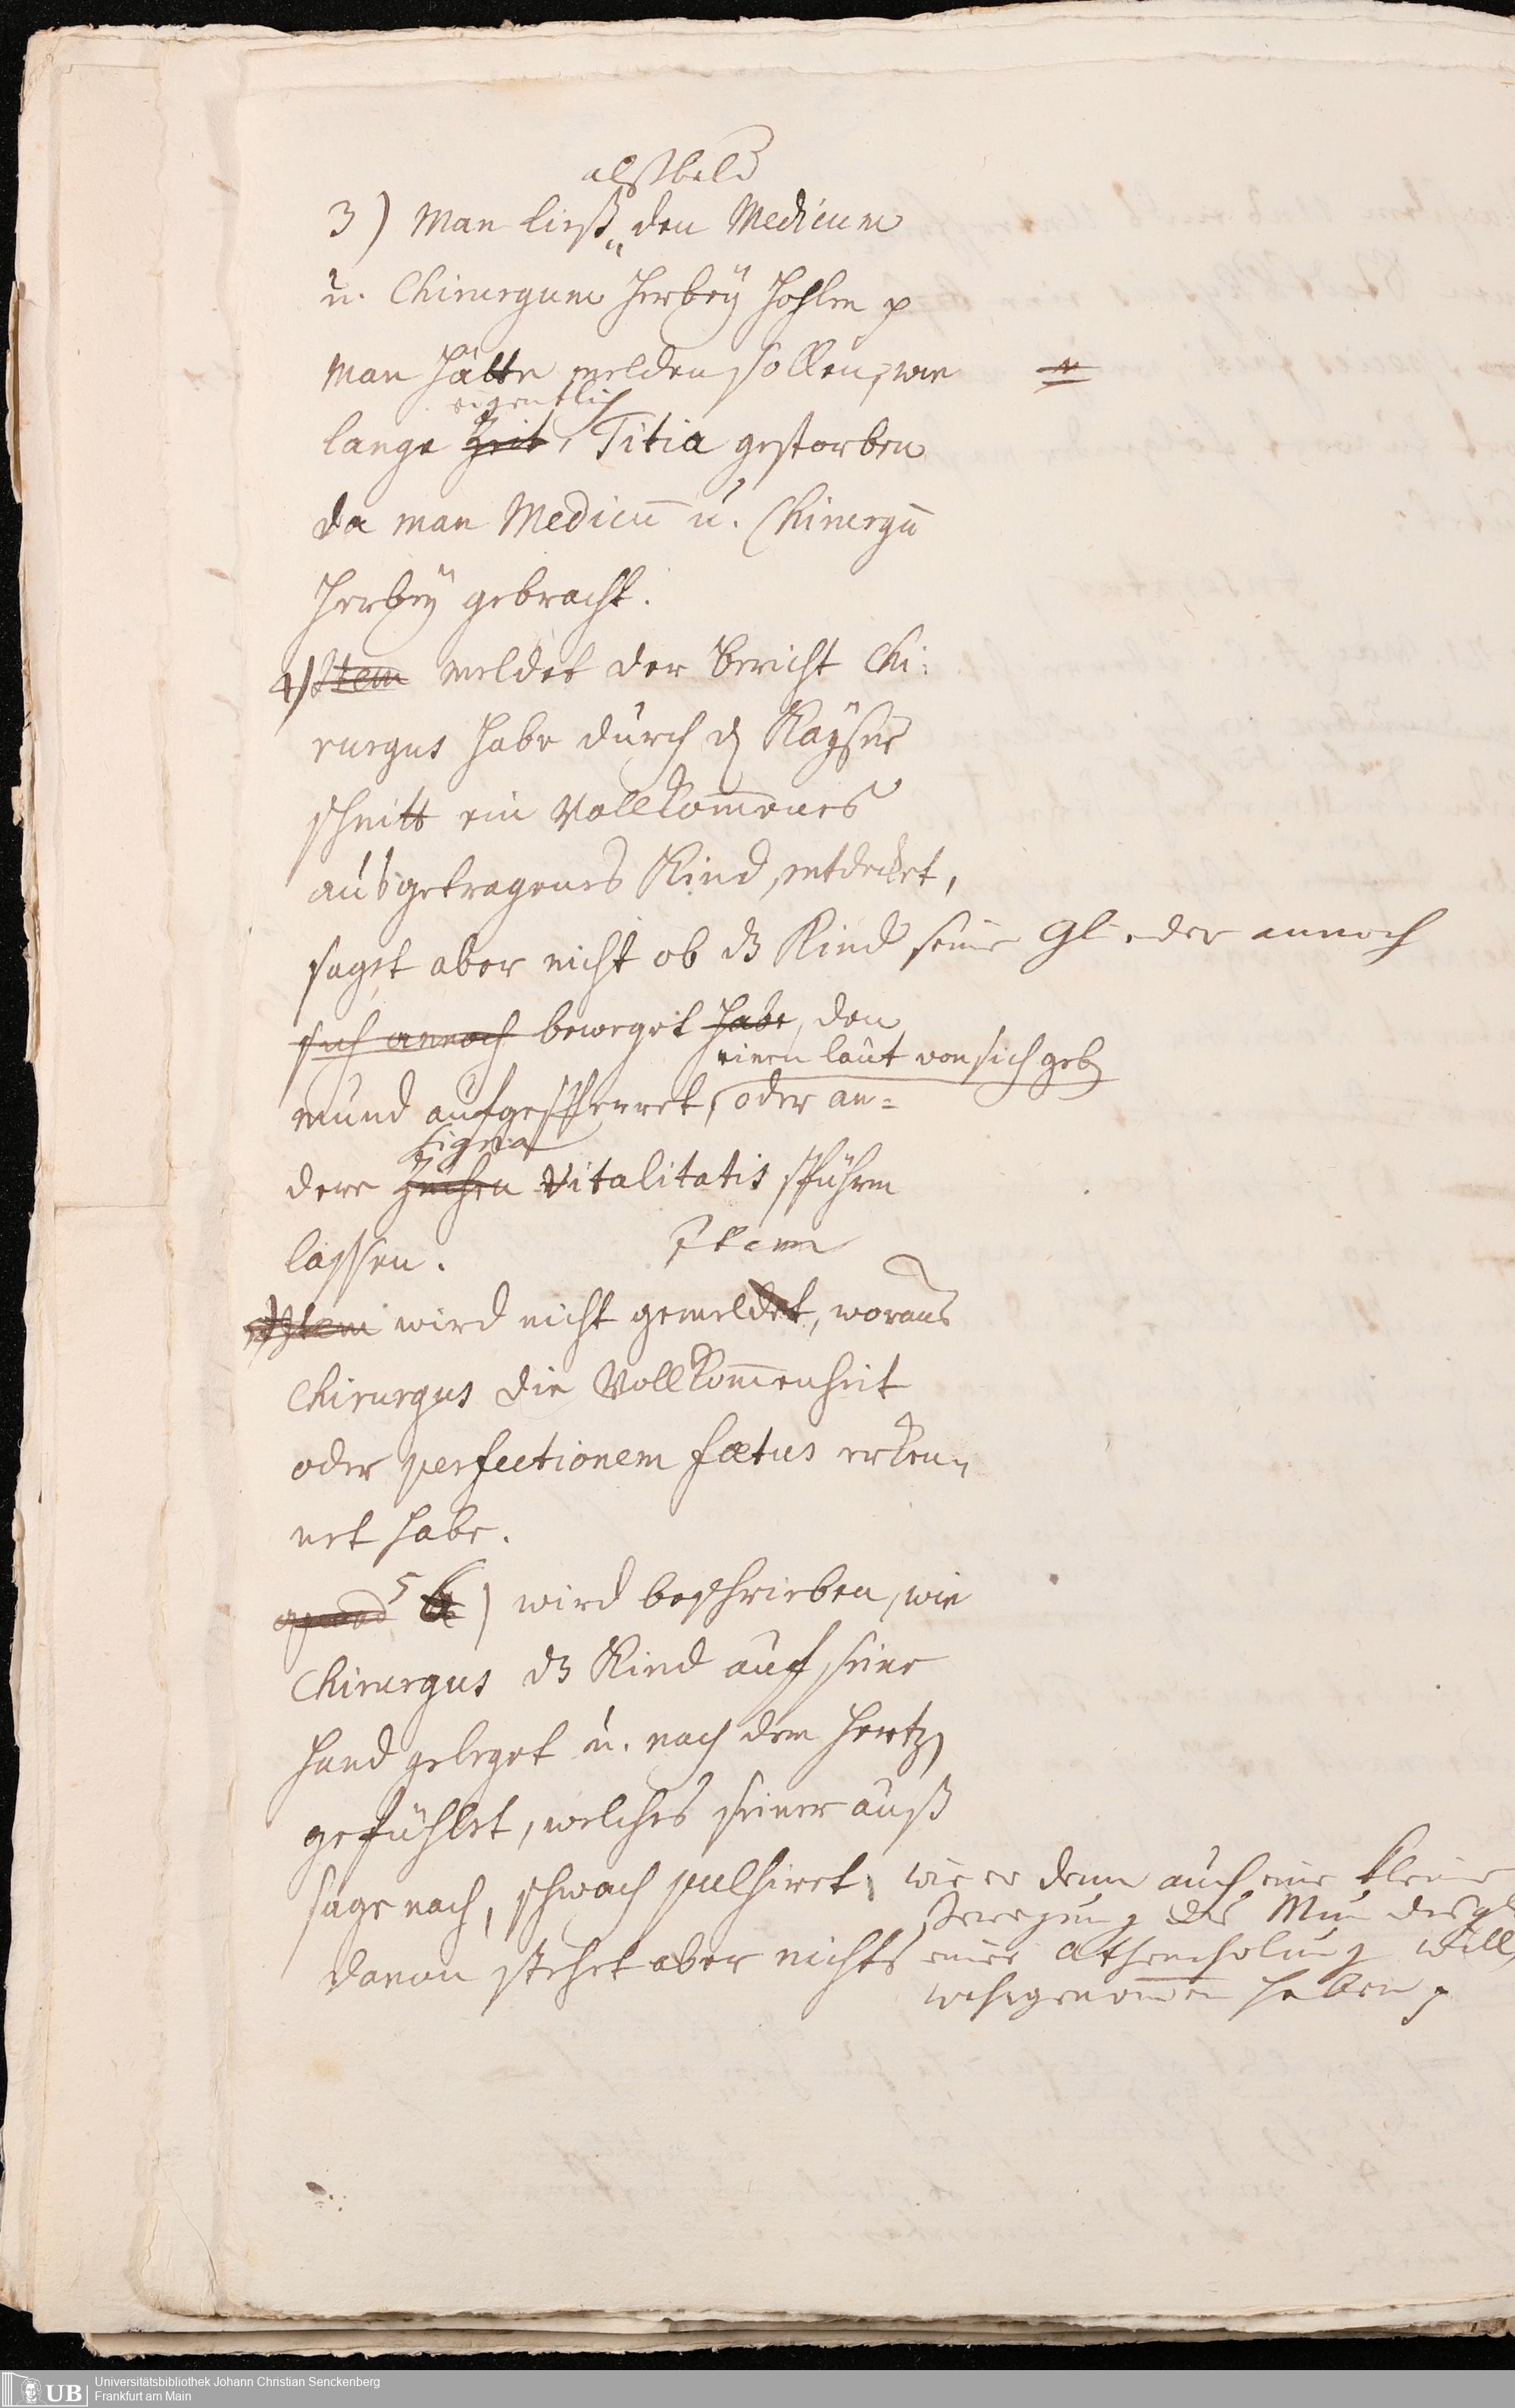 alßbald
3) Man ließ den Medicum
u. Chirurgum herbeÿ hohlen p
man hätte melden sollen, wie
eigentlich
lange Zeit, Titia gestorben
da man Medicũ u. Chirurgũ
herbeÿ gebracht.
4) Item meldet der Bericht Chi:
rurgus habe durch d Kaÿser
schnitt ein Vollkom̅enes
ausgetragenes Kind, entdecket,
saget aber nicht ob dz Kind seine Glieder annoch
sich annoch beweget habe, den
einen laut von sich geb
mund aufgesperret, oder an=
signa
dere Zeichen Vitalitatis spühren
lassen.
Item
Item wird nicht gemeldet, woraus
Chirurgus die Vollkom̅enheit
oder perfectionem fœtus erken
net habe.
5 6) wird beschrieben, wie
Chirurgus dz Kind auf seine
Hand geleget u. nach dem Hertz
gefühlet, welches seiner auß
sage nach, schwach pulsiret, wie er denn auch eine kleine
Bewegung des Mundes
davon stehet aber nichts einer Athemholung will
wahrgenom̅en haben p
Universitätsbibliothek Johann Christian Senckenberg
UB
Frankfurt am Main